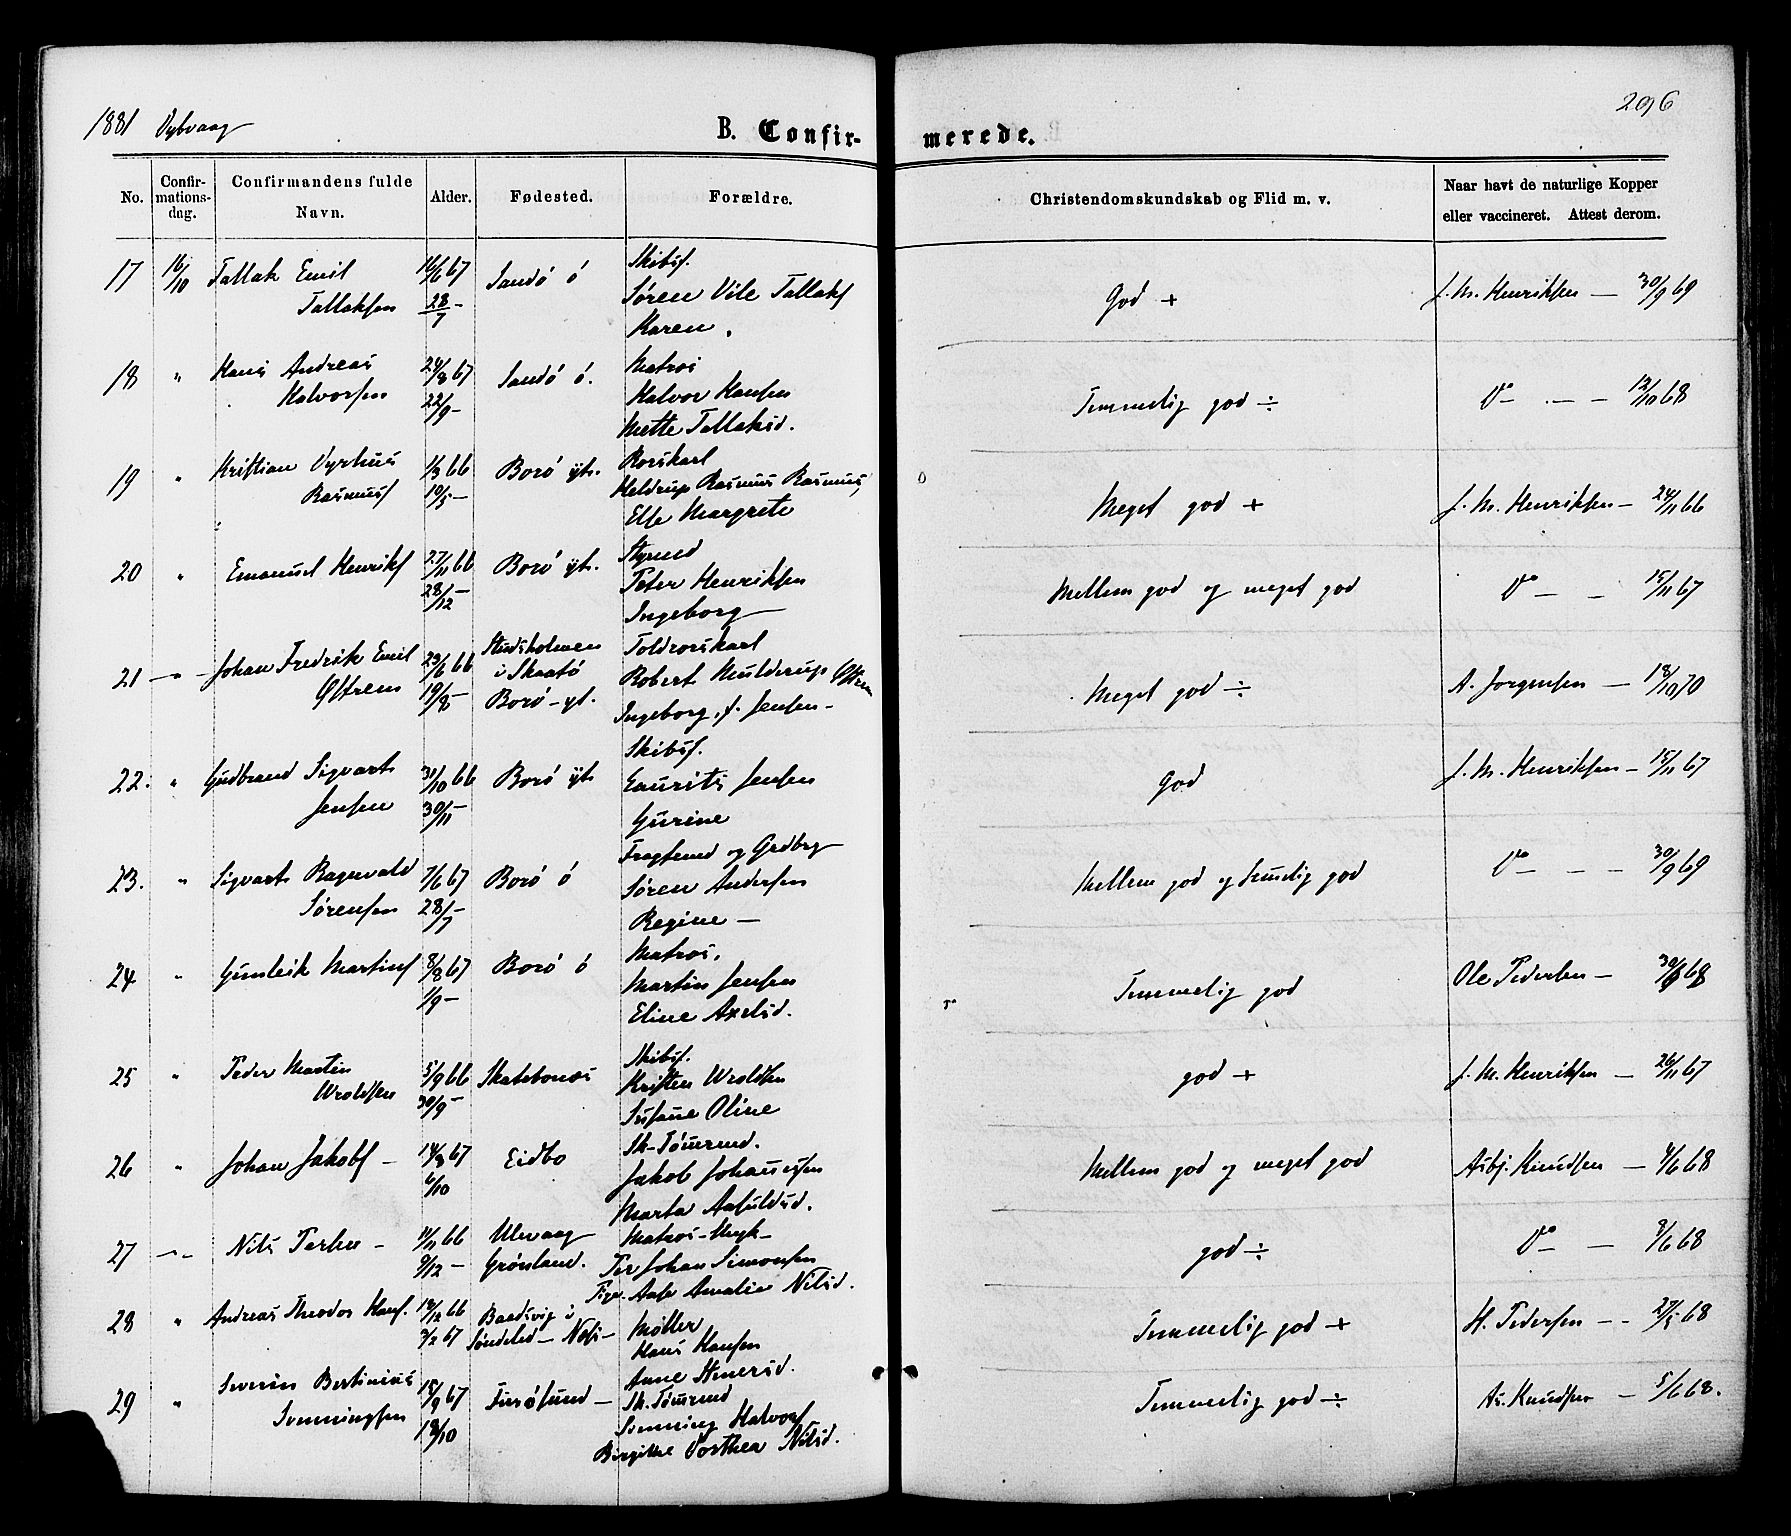 1881 Dybvaag
296
B. Confir-
merede.
No.
Confir-
mations-
dag.
Confirmandens fulde
Navn.
Alder.
Fødested.
Forældre.
Christendomskundskab og Flid m. v.
Naar havt de naturlige Kopper
eller vaccineret. Attest derom.
17 16/10 Tallak Emil 16/6 67 Sandö ö Skibsf.
Tallaksen 28/7 – Søren Vile Tallaks
Karen
God + J. M. Henriksen — 30/9 69
18 " Hans Andreas 24/8 67 Sandö ö. Matros
Halvorsen 22/9 – Halvor Hansen
Mette Tallaksd.
Temmelig god ÷ Do — — 12/10 68
19 " Kristian 1/3 66 Borö yt. Rorskarl
Rasmuss 10/5 – Meldrup Rasmus Rasmus,
Else Margrete
Meget god + J. M. Henriksen — 24/11 66
20 " Emanuel Henriks 27/11 66 Borö yt. Styrmd
28/12 – Peter Henriksen
Ingeborg —
Mellem god og meget god Do — — 15/11 67
21 — " — Johan Fredrik Emil 23/6 66 Studsholmen Toldrorskarl
Öftrem 19/8 – i Skaatö Robert Mulderup Öftrem
Borö – yt. Ingeborg, f. Jensen –
Meget god ÷ A. Jorgensen — 18/10 70
22. " Gudbrand Sigvart 31/10 66 Borö yt. Skibsf.
Jensen 30/11 – Laurits Jensen
Gurine
God J. M. Henriksen — 15/11 67
23. " Sigvart Ragnvald 7/6 67 Borö ö Fragtemd og Grdbrg
Sørensen 28/7 – Søren Andersen
Regine —
Mellem god og temelig god Do — — — 30/9 69
24 " Gunleik Martins 8/8 67 Borö ö Matros,
1/9 – Martin Jensen
Eline Axelsd.
Temmelig god Ole Pedersen — 68
25 " Peder Martin 5/9 66 Skatebonæs Skibsf.
Wroldsen 30/9 – Kristen Wroldsen
Susane Oline
god + J. M. Henriksen — 26/11 67
26 " Johan Jakobs – 14/8 67 Eidbo Sk-Tömrmd.
6/10 Jakob Johannessen
Marta Aasuldsd.
Mellem god og meget god Asbj. Knudsen — 4/6 68
27 — " — Nils Terhn – 11/11 66 Ulevaag Matros-
9/12 – Grönland. Per Johan Simonsen
Aase Amalie Nilsd.
god ÷ Do — 9/6 68
28 " Andreas Theodor Hans. 18/12 66 Baadsvig i Møller
3/2 67 Söndeled – Næs – Hans Hansen
Anne
Temmelig god + H. Pedersen – – 27/5 68
29 " Severin Bertinius 15/9 67 Furösund — Sk. Tömrmd
Svenningsen 13/10 Svenning Halvors
Birgitte Dorthea Nilsd.
Temmelig god ÷ As. Knudsen — 5/6 68.